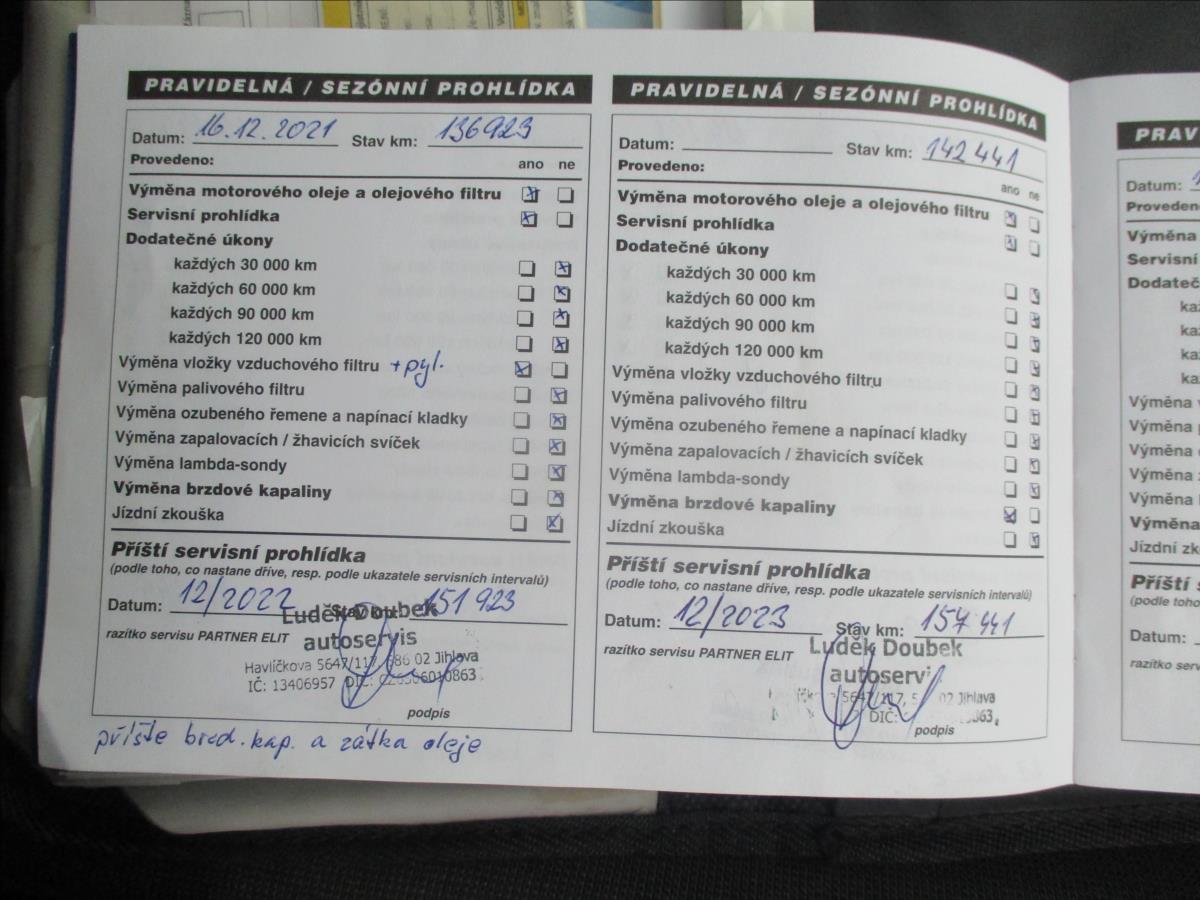 PRAVIDELNÁ / SEZÓNNÍ PROHLÍDKA
Datum: 16.12.2021 Stav km: 136923
Provedeno: ano ne
Výměna motorového oleje a olejového filtru
Servisní prohlídka
Dodatečné úkony
každých 30 000 km
každých 60 000 km
každých 90 000 km
každých 120 000 km
Výměna vložky vzduchového filtru +pyl.
Výměna palivového filtru
Výměna ozubeného řemene a napínací kladky
Výměna zapalovacích / žhavicích svíček
Výměna lambda-sondy
Výměna brzdové kapaliny
Jízdní zkouška
Příští servisní prohlídka
(podle toho, co nastane dříve, resp. podle ukazatele servisních intervalů)
Datum: 12/2022 151923
Luděk Doubek
razítko servisu PARTNER ELIT
autoservis
Havlíčkova 5647/117, 586 02 Jihlava
IČ: 13406957 DIČ:
podpis
příště brzd. kap. a zátka oleje
PRAVIDELNÁ / SEZÓNNÍ PROHLÍDKA
Datum: Stav km: 142441
Provedeno: ano ne
Výměna motorového oleje a olejového filtru
Servisní prohlídka
Dodatečné úkony
každých 30 000 km
každých 60 000 km
každých 90 000 km
každých 120 000 km
Výměna vložky vzduchového filtru
Výměna palivového filtru
Výměna ozubeného řemene a napínací kladky
Výměna zapalovacích / žhavicích svíček
Výměna lambda-sondy
Výměna brzdové kapaliny
Jízdní zkouška
Příští servisní prohlídka
(podle toho, co nastane dříve, resp. podle ukazatele servisních intervalů)
Datum: 12/2023 Stav km: 157441
razítko servisu PARTNER ELIT
Luděk Doubek
02 Jihlava
DIČ:
podpis
PRAV
Datum:
Provedeno
Výměna
Servisní
Dodateč
kaž
kaž
kaž
kaž
Výměna
Výměna
Výměna
Výměna
Výměna
Výměna
Jízdní zk
Příští s
(podle toho
Datum:
razítko servi